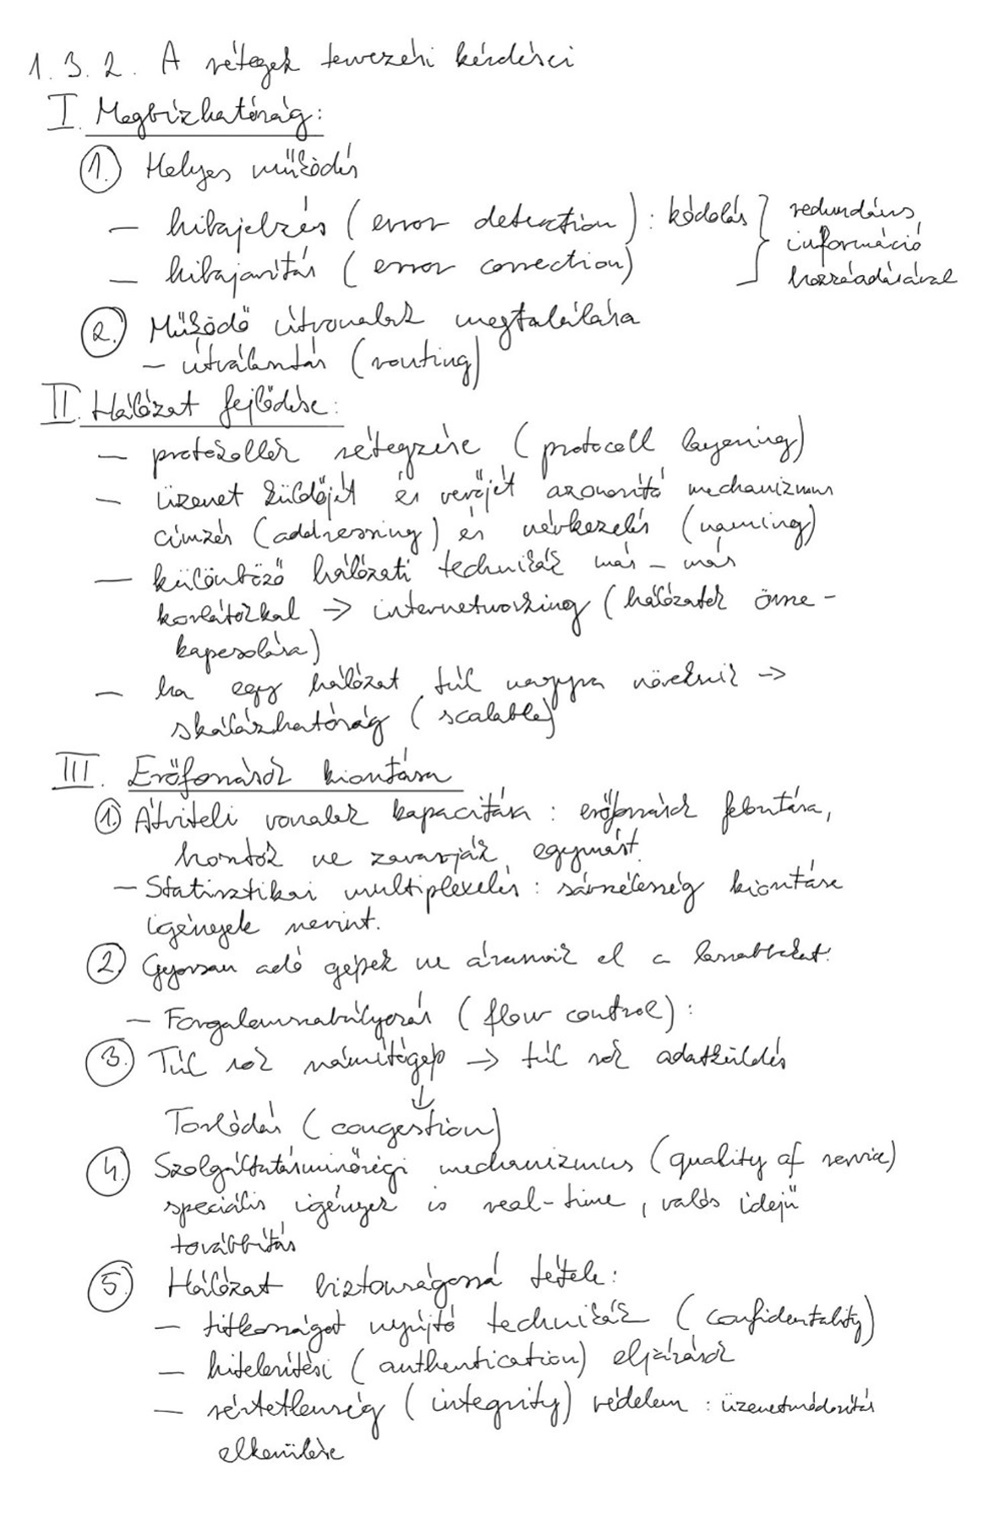 1.3.2. A rétegek tervezési kérdései
I. Megbízhatóság:
1. Helyes működés
- hibajelzés (error detection): kódolás } redundáns
információ
- hibajavítás (error correction)
hozzáadásával
2. Működő útvonalak megtalálása
- útválasztás (routing)
II. Hálózat fejlődése:
- protokollok rétegzése (protocoll layering)
- üzenet küldőjét és vevőjét azonosító mechanizmus
címzés (addressing) és névkezelés (naming)
- különböző hálózati technikák más - más
korlátokkal -> internetworking (hálózatok össze-
kapcsolása)
- ha egy hálózat túl nagyra növekszik ->
skálázhatóság (scalable)
III. Erőforrások kiosztása
1. Átviteli vonalak kapacitása: erőforrások felosztása,
hosztok ne zavarják egymást.
- Statisztikai multiplexelés: sávszélesség kiosztása
igények szerint.
2. Gyorsan adó gépek ne árasszák el a lassabbakat.
- Forgalomszabályozás (flow control):
3. Túl sok számítógép -> túl sok adatküldés
↓
Torlódás (congestion)
4. Szolgáltatásminőségi mechanizmus (quality of service)
speciális igények is real-time, valós idejű
továbbítás
5. Hálózat biztonságossá tétele:
- titkosságot nyújtó technikák (confidentality)
- hitelesítési (authentication) eljárások
- sértetlenség (integrity) védelem: üzenetmódosítás
elkerülése